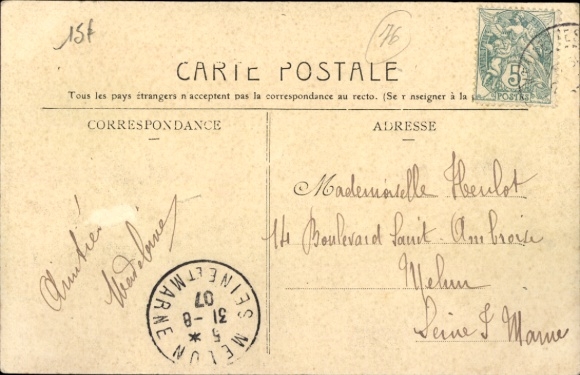 15f
76
CARTE POSTALE
Tous les pays étrangers n'acceptent pas la correspondance au recto. (Se renseigner à la
5
POSTES
CORRESPONDANCE
ADRESSE
Mademoiselle
14 Boulevard Saint Ambroise
Melun
Seine & Marne
Amitié
Madeleine
MELUN
SEINE ET MARNE
5
31-8
07